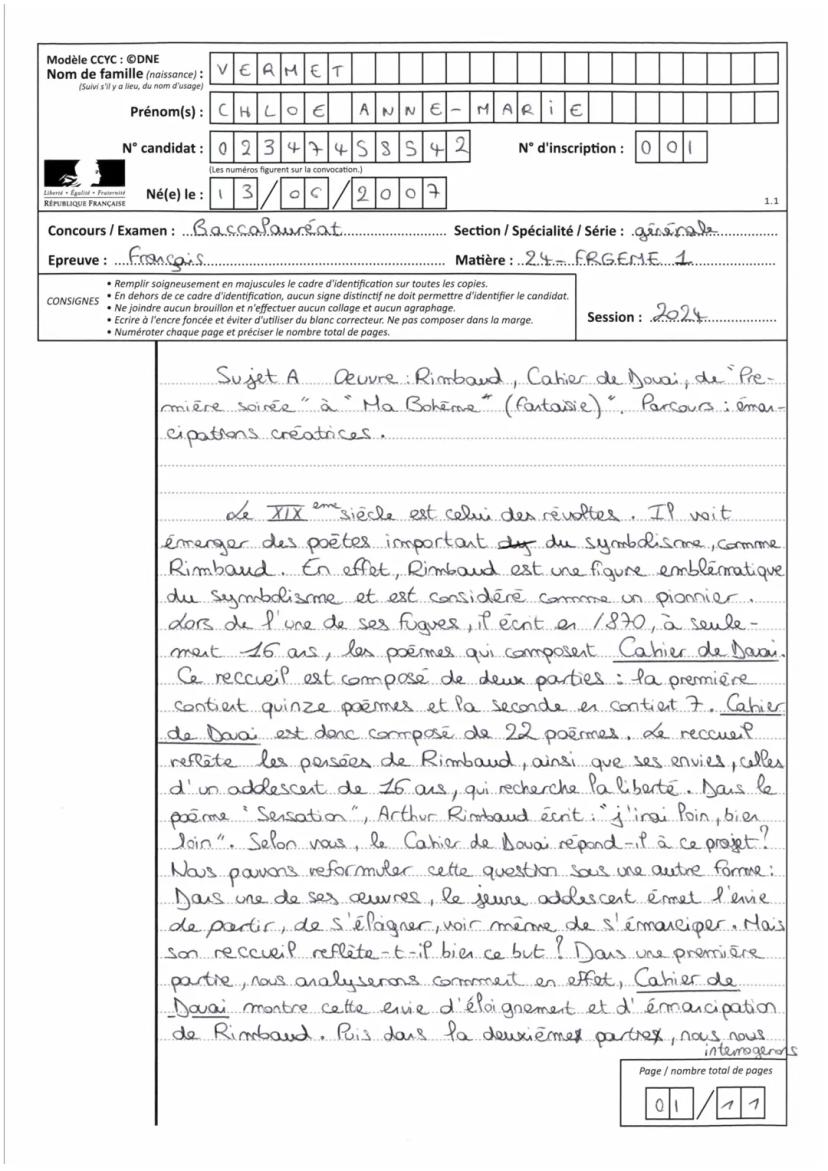 Modèle CCYC : ©DNE
Nom de famille (naissance) : VERMET
(Suivi s'il y a lieu, du nom d'usage)
Prénom(s) : CHLOE ANNE-MARIE
N° candidat : 02347458542 N° d'inscription : 001
(Les numéros figurent sur la convocation.)
Liberté • Égalité • Fraternité
RÉPUBLIQUE FRANÇAISE
Né(e) le : 13/06/2007
1.1
Concours / Examen : Baccalauréat Section / Spécialité / Série : générale
Epreuve : Français Matière : 24-FRGEME 1
CONSIGNES
• Remplir soigneusement en majuscules le cadre d'identification sur toutes les copies.
• En dehors de ce cadre d'identification, aucun signe distinctif ne doit permettre d'identifier le candidat.
• Ne joindre aucun brouillon et n'effectuer aucun collage et aucun agraphage.
• Ecrire à l'encre foncée et éviter d'utiliser du blanc correcteur. Ne pas composer dans la marge.
• Numéroter chaque page et préciser le nombre total de pages.
Session : 2024
Sujet A Œuvre : Rimbaud, Cahier de Douai, de "Pre-
mière soirée" à "Ma Bohème" (Fantaisie)". Parcours : éman-
cipations créatrices.
Le XIX eme siècle est celui des révoltes. Il voit
émerger des poètes important du symbolisme, comme
Rimbaud. En effet, Rimbaud est une figure emblématique
du symbolisme et est considéré comme un pionnier.
Lors de l'une de ses fugues, il écrit en 1870, à seule-
ment 16 ans, les poèmes qui composent Cahier de Douai.
Ce reccueil est composé de deux parties : la première
contient quinze poèmes et la seconde en contient 7. Cahier
de Douai est donc composé de 22 poèmes. Le reccueil
reflète les pensées de Rimbaud, ainsi que ses envies, celles
d'un adolescent de 16 ans, qui recherche la liberté. Dans le
poème "Sensation", Arthur Rimbaud écrit : "j'irai loin, bien
loin". Selon vous, le Cahier de Douai répond-il à ce projet ?
Nous pouvons reformuler cette question sous une autre forme :
Dans une de ses œuvres, le jeune adolescent émet l'envie
de partir, de s'élogner, voir même de s'émanciper. Mais
son reccueil reflète-t-il bien ce but ? Dans une première
partie, nous analyserons comment en effet, Cahier de
Douai montre cette envie d'éloignement et d'émancipation
de Rimbaud. Puis dans la deuxième partie, nous nous
interrogerons
Page / nombre total de pages
01/11